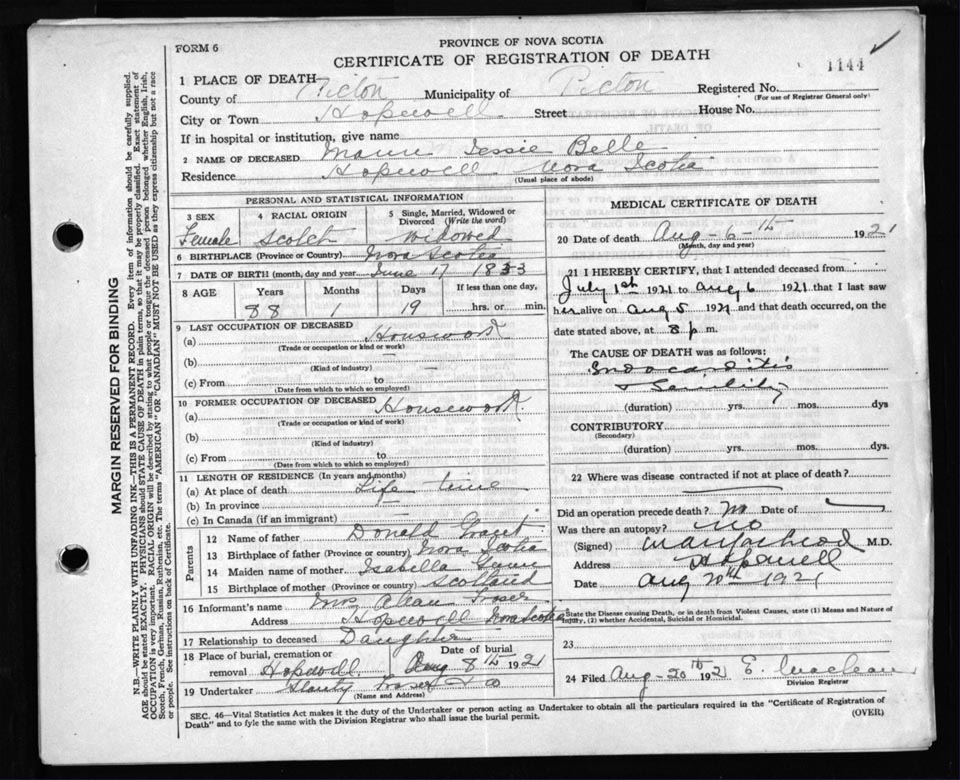 FORM 6
PROVINCE OF NOVA SCOTIA
CERTIFICATE OF REGISTRATION OF DEATH
1144
1 PLACE OF DEATH—
County of Pictou Municipality of Pictou Registered No.
(For use of Registrar General only)
City or Town Hopewell Street House No.
If in hospital or institution, give name
2 NAME OF DECEASED Jessie Belle
Residence Hopewell Nova Scotia
(Usual place of abode)
PERSONAL AND STATISTICAL INFORMATION
3 SEX Female
4 RACIAL ORIGIN Scotch
5 Single, Married, Widowed or Divorced (Write the word) Widowed
6 BIRTHPLACE (Province or Country) Nova Scotia
7 DATE OF BIRTH (month, day and year) June 17 1833
8 AGE Years Months Days If less than one day,
88 1 19 hrs. or min.
9 LAST OCCUPATION OF DECEASED
(a) Housework
(Trade or occupation or kind or work)
(b) —
(Kind of industry)
(c) From to
(Date from which to which so employed)
10 FORMER OCCUPATION OF DECEASED
(a) Housework.
(Trade or occupation or kind of work)
(b)
(Kind of industry)
(c) From to
(Date from which to which so employed)
11 LENGTH OF RESIDENCE (In years and months)
(a) At place of death Life time
(b) In province
(c) In Canada (if an immigrant)
Parents
12 Name of father Donald Grant
13 Birthplace of father (Province or country) Nova Scotia
14 Maiden name of mother Isabella
15 Birthplace of mother (Province or country) Scotland
16 Informant's name Mrs Fraser
Address Hopewell Nova Scotia
17 Relationship to deceased Daughter
18 Place of burial, cremation or removal Hopewell. Date of burial Aug 8th 1921
19 Undertaker Fraser & Co
(Name and Address)
MEDICAL CERTIFICATE OF DEATH
20 Date of death Aug - 6 - th 1921
(Month, day and year)
21 I HEREBY CERTIFY, that I attended deceased from
July 1st 1921 to Aug 6 1921 that I last saw
her alive on Aug 5 1921 and that death occurred, on the
date stated above, at 8 p m.
The CAUSE OF DEATH was as follows:
Endocarditis
& Senility
(duration) yrs. mos. dys
CONTRIBUTORY
(Secondary)
(duration) yrs. mos. dys.
22 Where was disease contracted if not at place of death?
Did an operation precede death? No Date of
Was there an autopsy? No
(Signed) M.D.
Address Hopewell
Date Aug 20th 1921
State the Disease causing Death, or in death from Violent Causes, state (1) Means and Nature of
Injury, (2) whether Accidental, Suicidal or Homicidal.
23
24 Filed Aug - 20th 1921 E. Maclean
Division Registrar
SEC. 46—Vital Statistics Act makes it the duty of the Undertaker or person acting as Undertaker to obtain all the particulars required in the "Certificate of Registration of
Death" and to fyle the same with the Division Registrar who shall issue the burial permit. (OVER)
MARGIN RESERVED FOR BINDING
N.B.—WRITE PLAINLY WITH UNFADING INK—THIS IS A PERMANENT RECORD. Every item of information should be carefully supplied.
AGE should be stated EXACTLY. PHYSICIANS should STATE CAUSE OF DEATH in plain terms, so that it may be properly classified. Exact statement of
OCCUPATION is very important. RACIAL ORIGIN will be described by stating to what people or tongue the deceased person belonged whether English, Irish,
Scotch, French, German, Russian, Ruthenian, etc. The terms "AMERICAN" OR "CANADIAN" MUST NOT BE USED as they express citizenship but not a race
or people. See instructions on back of Certificate.